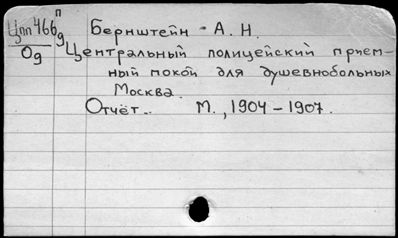 Цпп466 п
9
Од
Бернштейн А. Н.
Центральный полицейский прием-
ный покой для душевнобольных
Москва.
Отчёт.. М., 1904-1907.